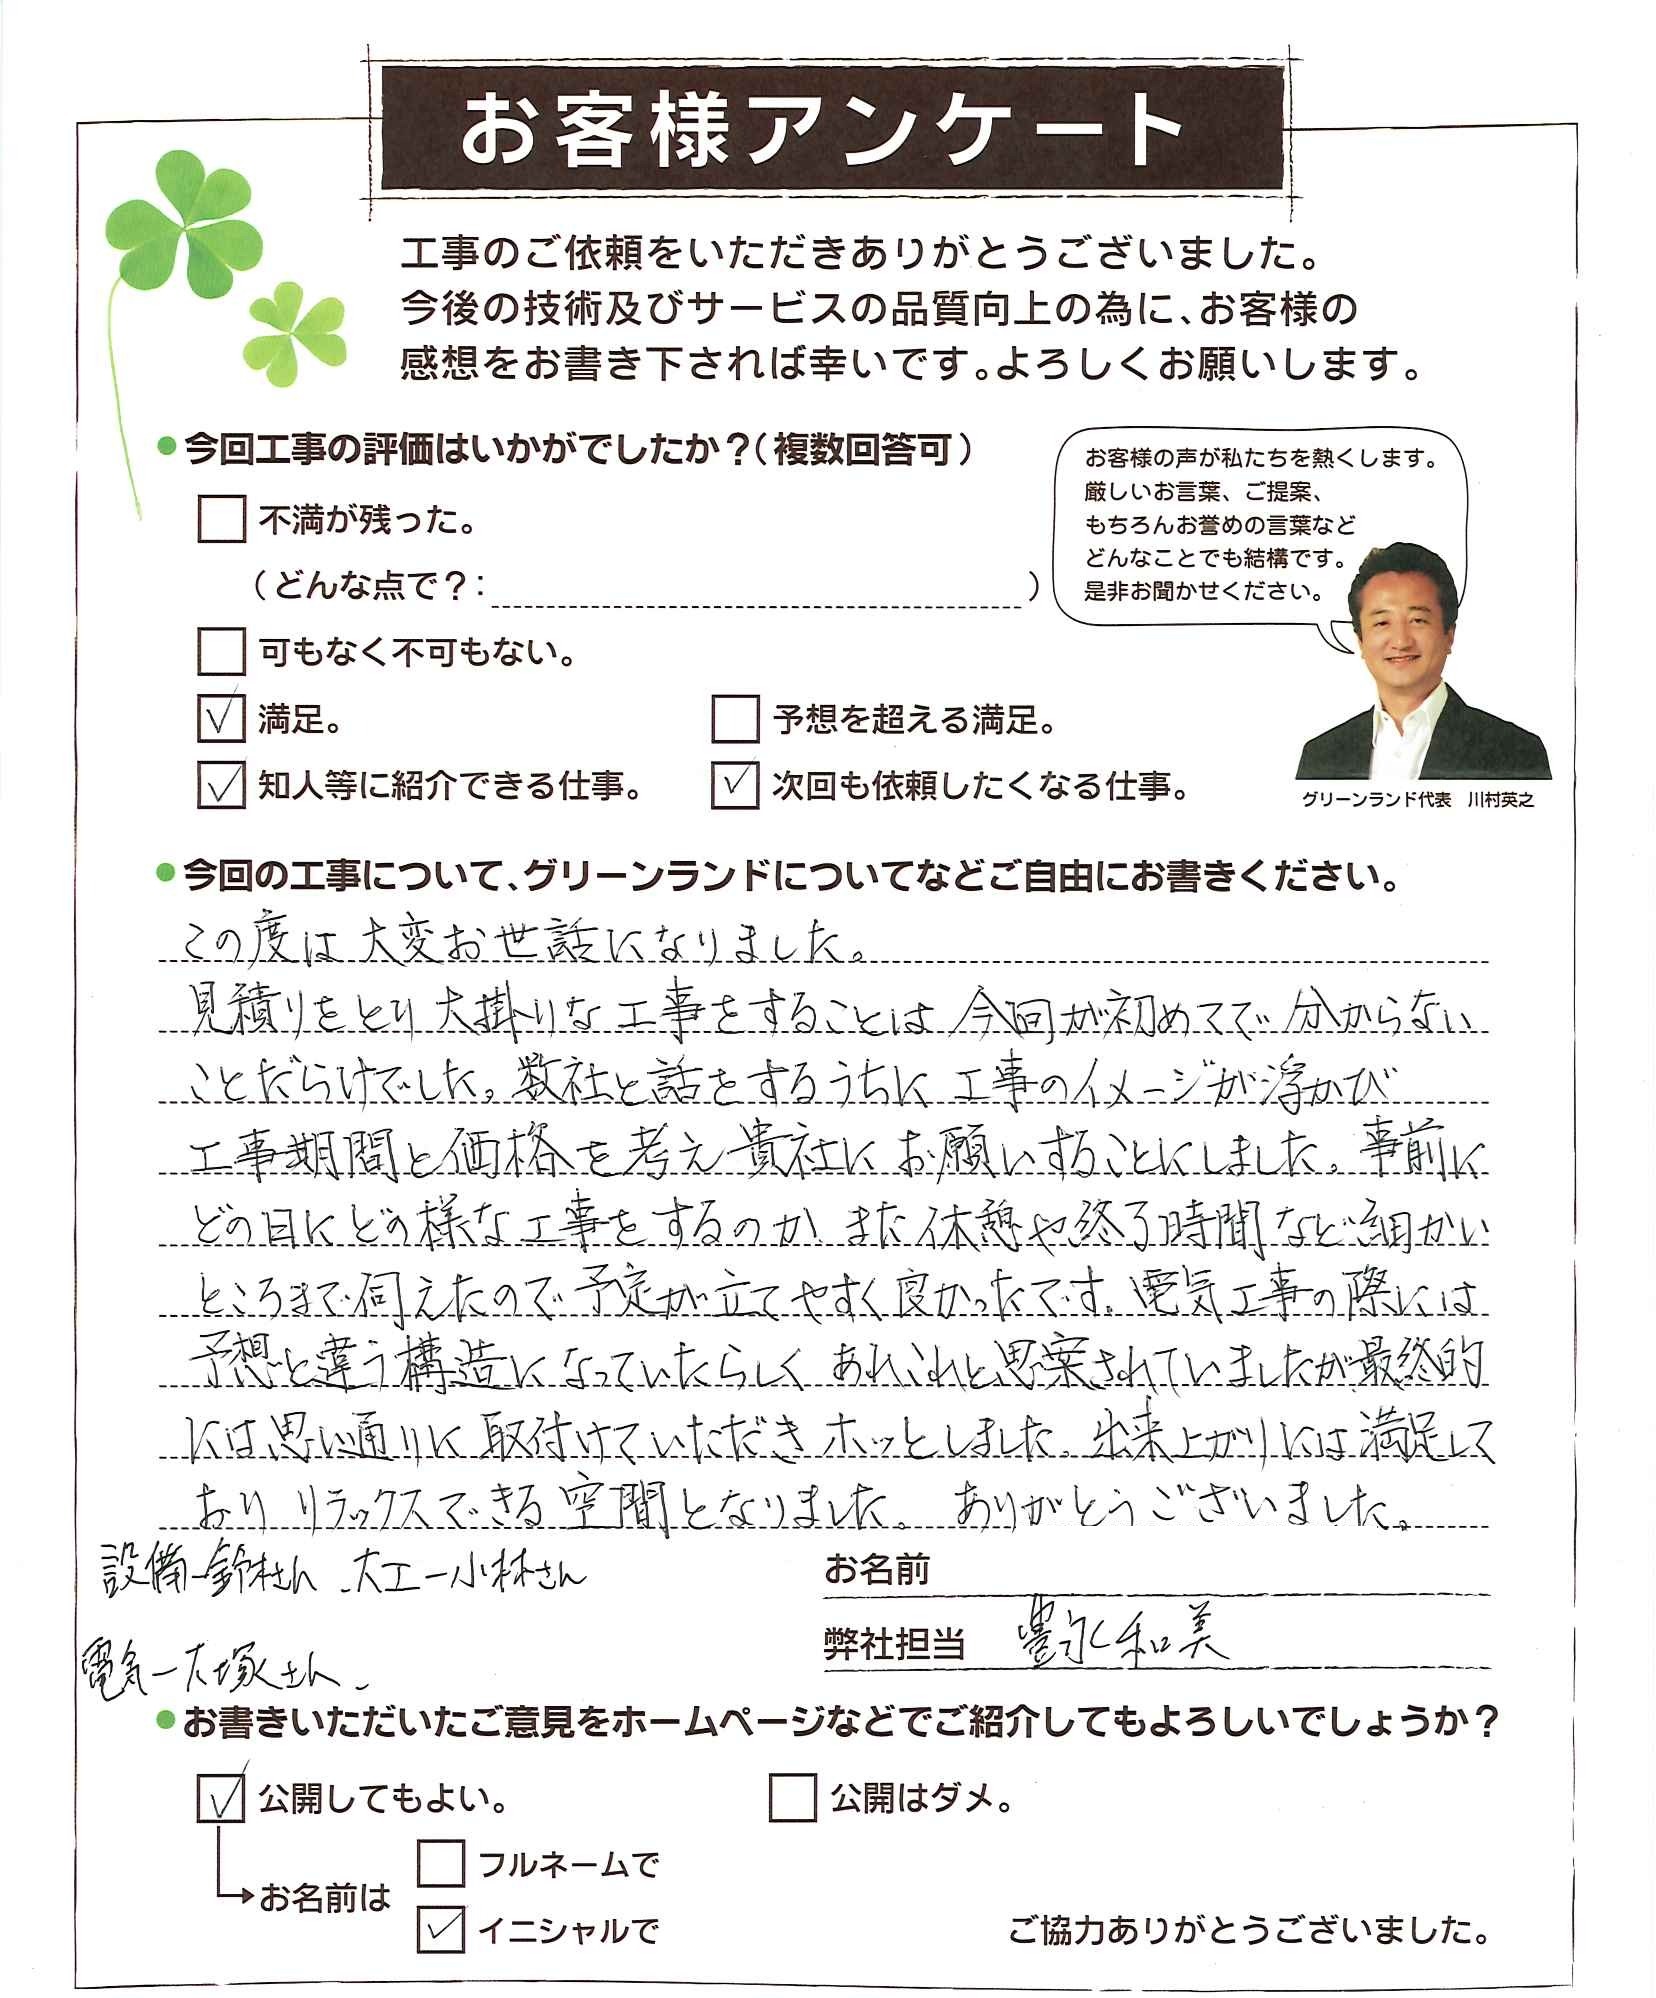 お客様アンケート
工事のご依頼をいただきありがとうございました。
今後の技術及びサービスの品質向上の為に、お客様の
感想をお書き下されば幸いです。よろしくお願いします。
●今回工事の評価はいかがでしたか?(複数回答可)
お客様の声が私たちを熱くします。
厳しいお言葉、ご提案、
もちろんお誉めの言葉など
どんなことでも結構です。
是非お聞かせください。
不満が残った。
(どんな点で?: )
可もなく不可もない。
✓ 満足。
予想を超える満足。
✓ 知人等に紹介できる仕事。
✓ 次回も依頼したくなる仕事。
グリーンランド代表 川村英之
●今回の工事について、グリーンランドについてなどご自由にお書きください。
この度は大変お世話になりました。
見積りをとり大掛りな工事をすることは今回が初めてで分からない
ことだらけでした。数社と話をするうちに工事のイメージが浮かび
工事期間と価格を考え貴社にお願いすることにしました。事前に
どの日にどの様な工事をするのか、また休憩や終了時間など細かい
ところまで伺えたので予定が立てやすく良かったです。電気工事の際には
予想と違う構造になっていたらしくあれこれと思案されていましたが最終的
には思い通りに取付けていただきホッとしました。出来上がりには満足して
おりリラックスできる空間となりました。ありがとうございました。
設備ー鈴木さん、大工ー小林さん
電気ー大塚さん、
お名前
弊社担当 豊永和美
●お書きいただいたご意見をホームページなどでご紹介してもよろしいでしょうか?
✓ 公開してもよい。
公開はダメ。
フルネームで
お名前は
✓ イニシャルで
ご協力ありがとうございました。